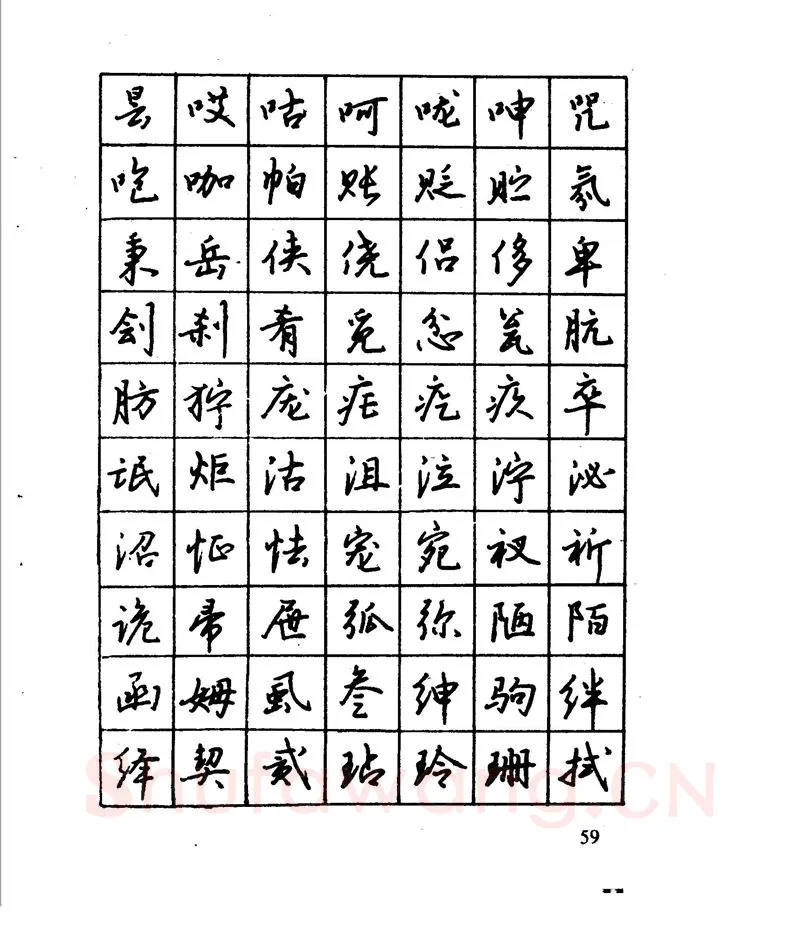 昙 哎 咕 呵 咙 呻 咒
咆 咖 帕 账 贬 贮 氛
秉 岳 侠 侥 侣 侈 卑
刽 刹 肴 觅 忿 瓮 肮
肪 狞 庞 疟 疙 疚 卒
氓 炬 沽 沮 泣 泞 泌
沼 怔 怯 宠 宛 衩 祈
诡 帚 屉 弧 弥 陋 陌
函 姆 虱 叁 绅 驹 绊
绎 契 贰 玷 玲 珊 拭
Shufawang.CN
59